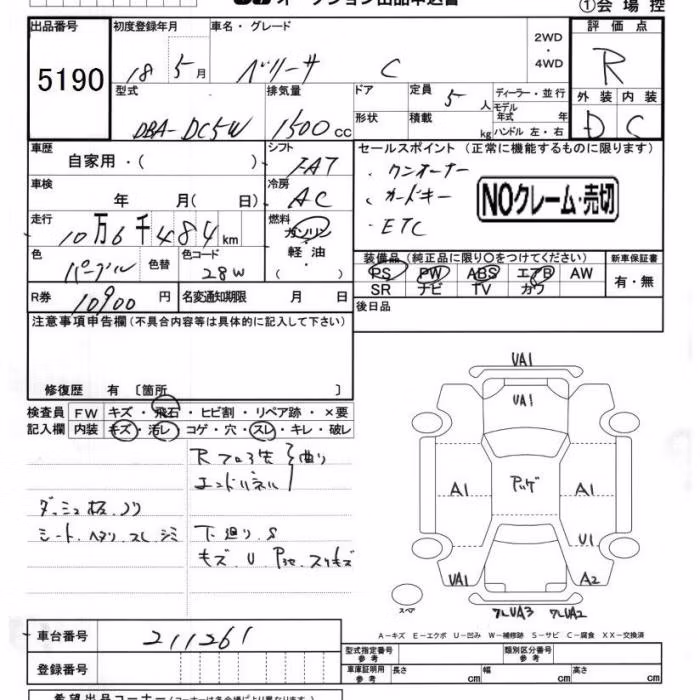 オークション出品申込書
①会場控
出品番号
5190
初度登録年月
18 5月
車名・グレード
ベリーサ C
2WD・4WD
評価点
R
型式
DBA-DC5W
排気量
1500cc
ドア
形状
定員
5人
積載
kg
ディーラー・並行
モデル年式 年
ハンドル 左・右
外装 内装
D C
車歴
自家用・( )
シフト
FAT
セールスポイント (正常に機能するものに限ります)
・ワンオーナー
・カードキー
・ETC
NOクレーム・売切
車検
年 月( 日)
冷房
AC
走行
10万6千484km
燃料
ガソリン・軽油・( )
色
パープル
色替
色コード
28W
装備品(純正品に限り〇をつけてください)
PS PW ABS エアB AW
SR ナビ TV カワ
新車保証書
有・無
R券
10900円
名変通知期限 月 日
後日品
注意事項申告欄(不具合内容等は具体的に記入して下さい)
修復歴 有〔箇所 〕
検査員記入欄
FW キズ・飛石・ヒビ割・リペア跡・×要
内装 キズ・汚レ・コゲ・穴・スレ・キレ・破レ
Rフロア先 曲り
エンドパネル
ダッシュ板ノリ
シート ヘタリ スレ シミ
下廻りS
キズ U スリキズ
UA1
UA1
A1
A1
U1
UA1
A2
スペア
UA3
UA2
車台番号
211261
A-キズ E-エクボ U-凹み W-補修跡 S-サビ C-腐食 XX-交換済
登録番号
型式指定番号 参考
類別区分番号 参考
車庫証明用 参考
長さ cm
幅 cm
高さ cm
希望出品コーナー